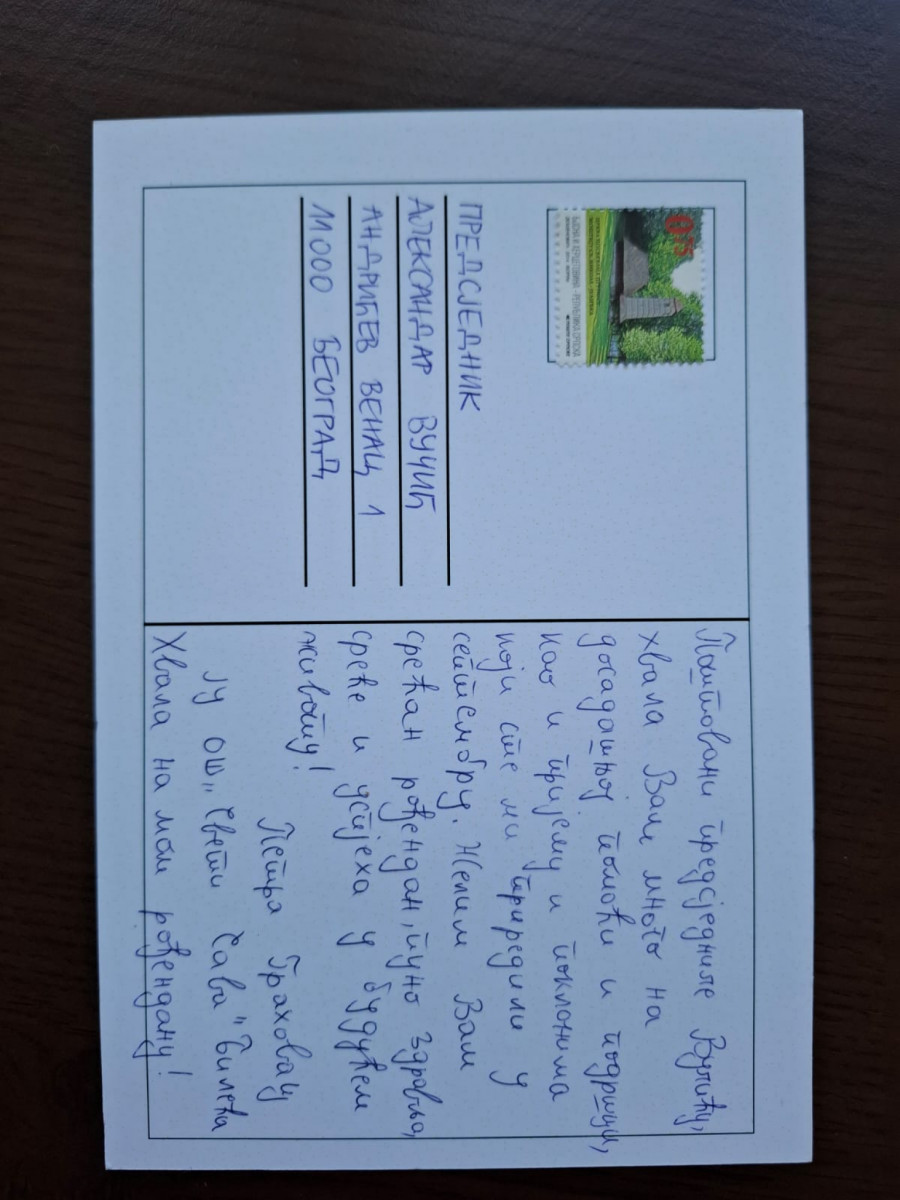 0,75
БОСНА И ХЕРЦЕГОВИНА - РЕПУБЛИКА СРПСКА
ПРЕДСЈЕДНИК
АЛЕКСАНДАР ВУЧИЋ
АНДРИЋЕВ ВЕНАЦ 1
11000 БЕОГРАД
Поштовани предсједниче Вучићу,
хвала Вам много на
досадашњој помоћи и подршци,
као и пријему и поклонима
који сте ми приредили у
септембру. Желим Вам
срећан рођендан, пуно здравља,
среће и успјеха у будућем
животу!
Петра Граховац
ЈУ ОШ „Свети Сава" Билећа
Хвала на мом рођендану!